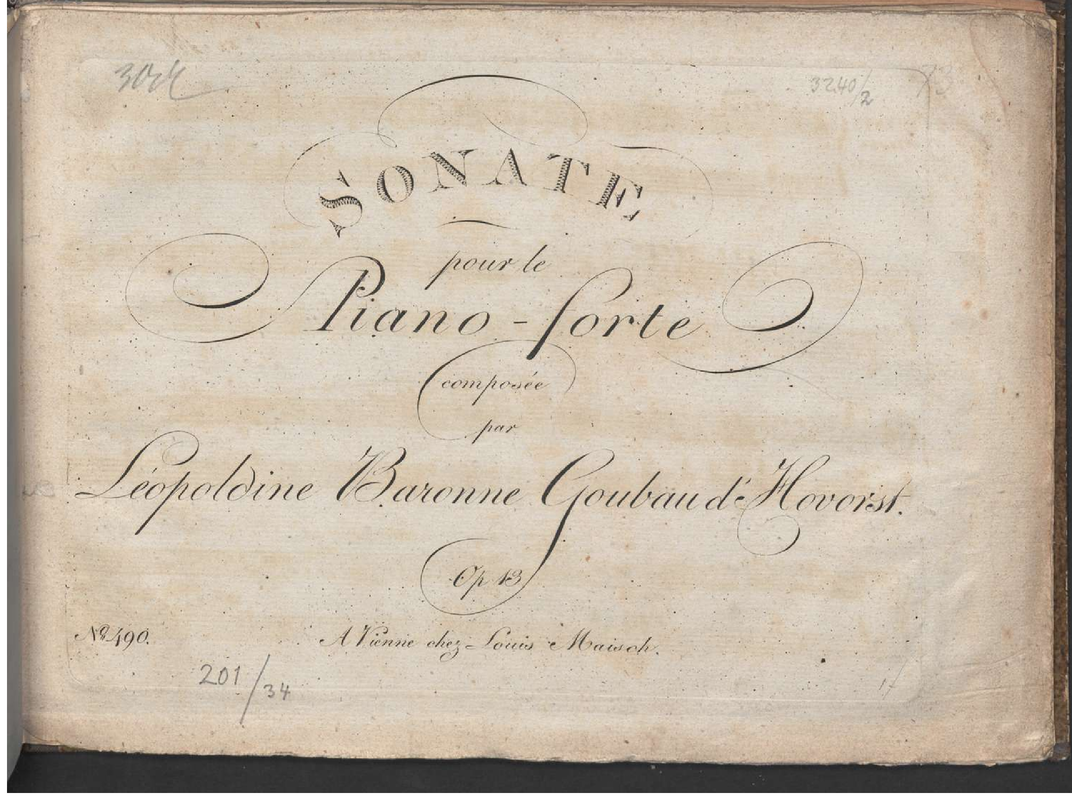 3240/2
SONATE
pour le
Piano-forte
composée
par
Léopoldine Baronne Goubau d'Hovorst.
Op 13
No 490.
A Vienne chez Louis Maisch.
201/34